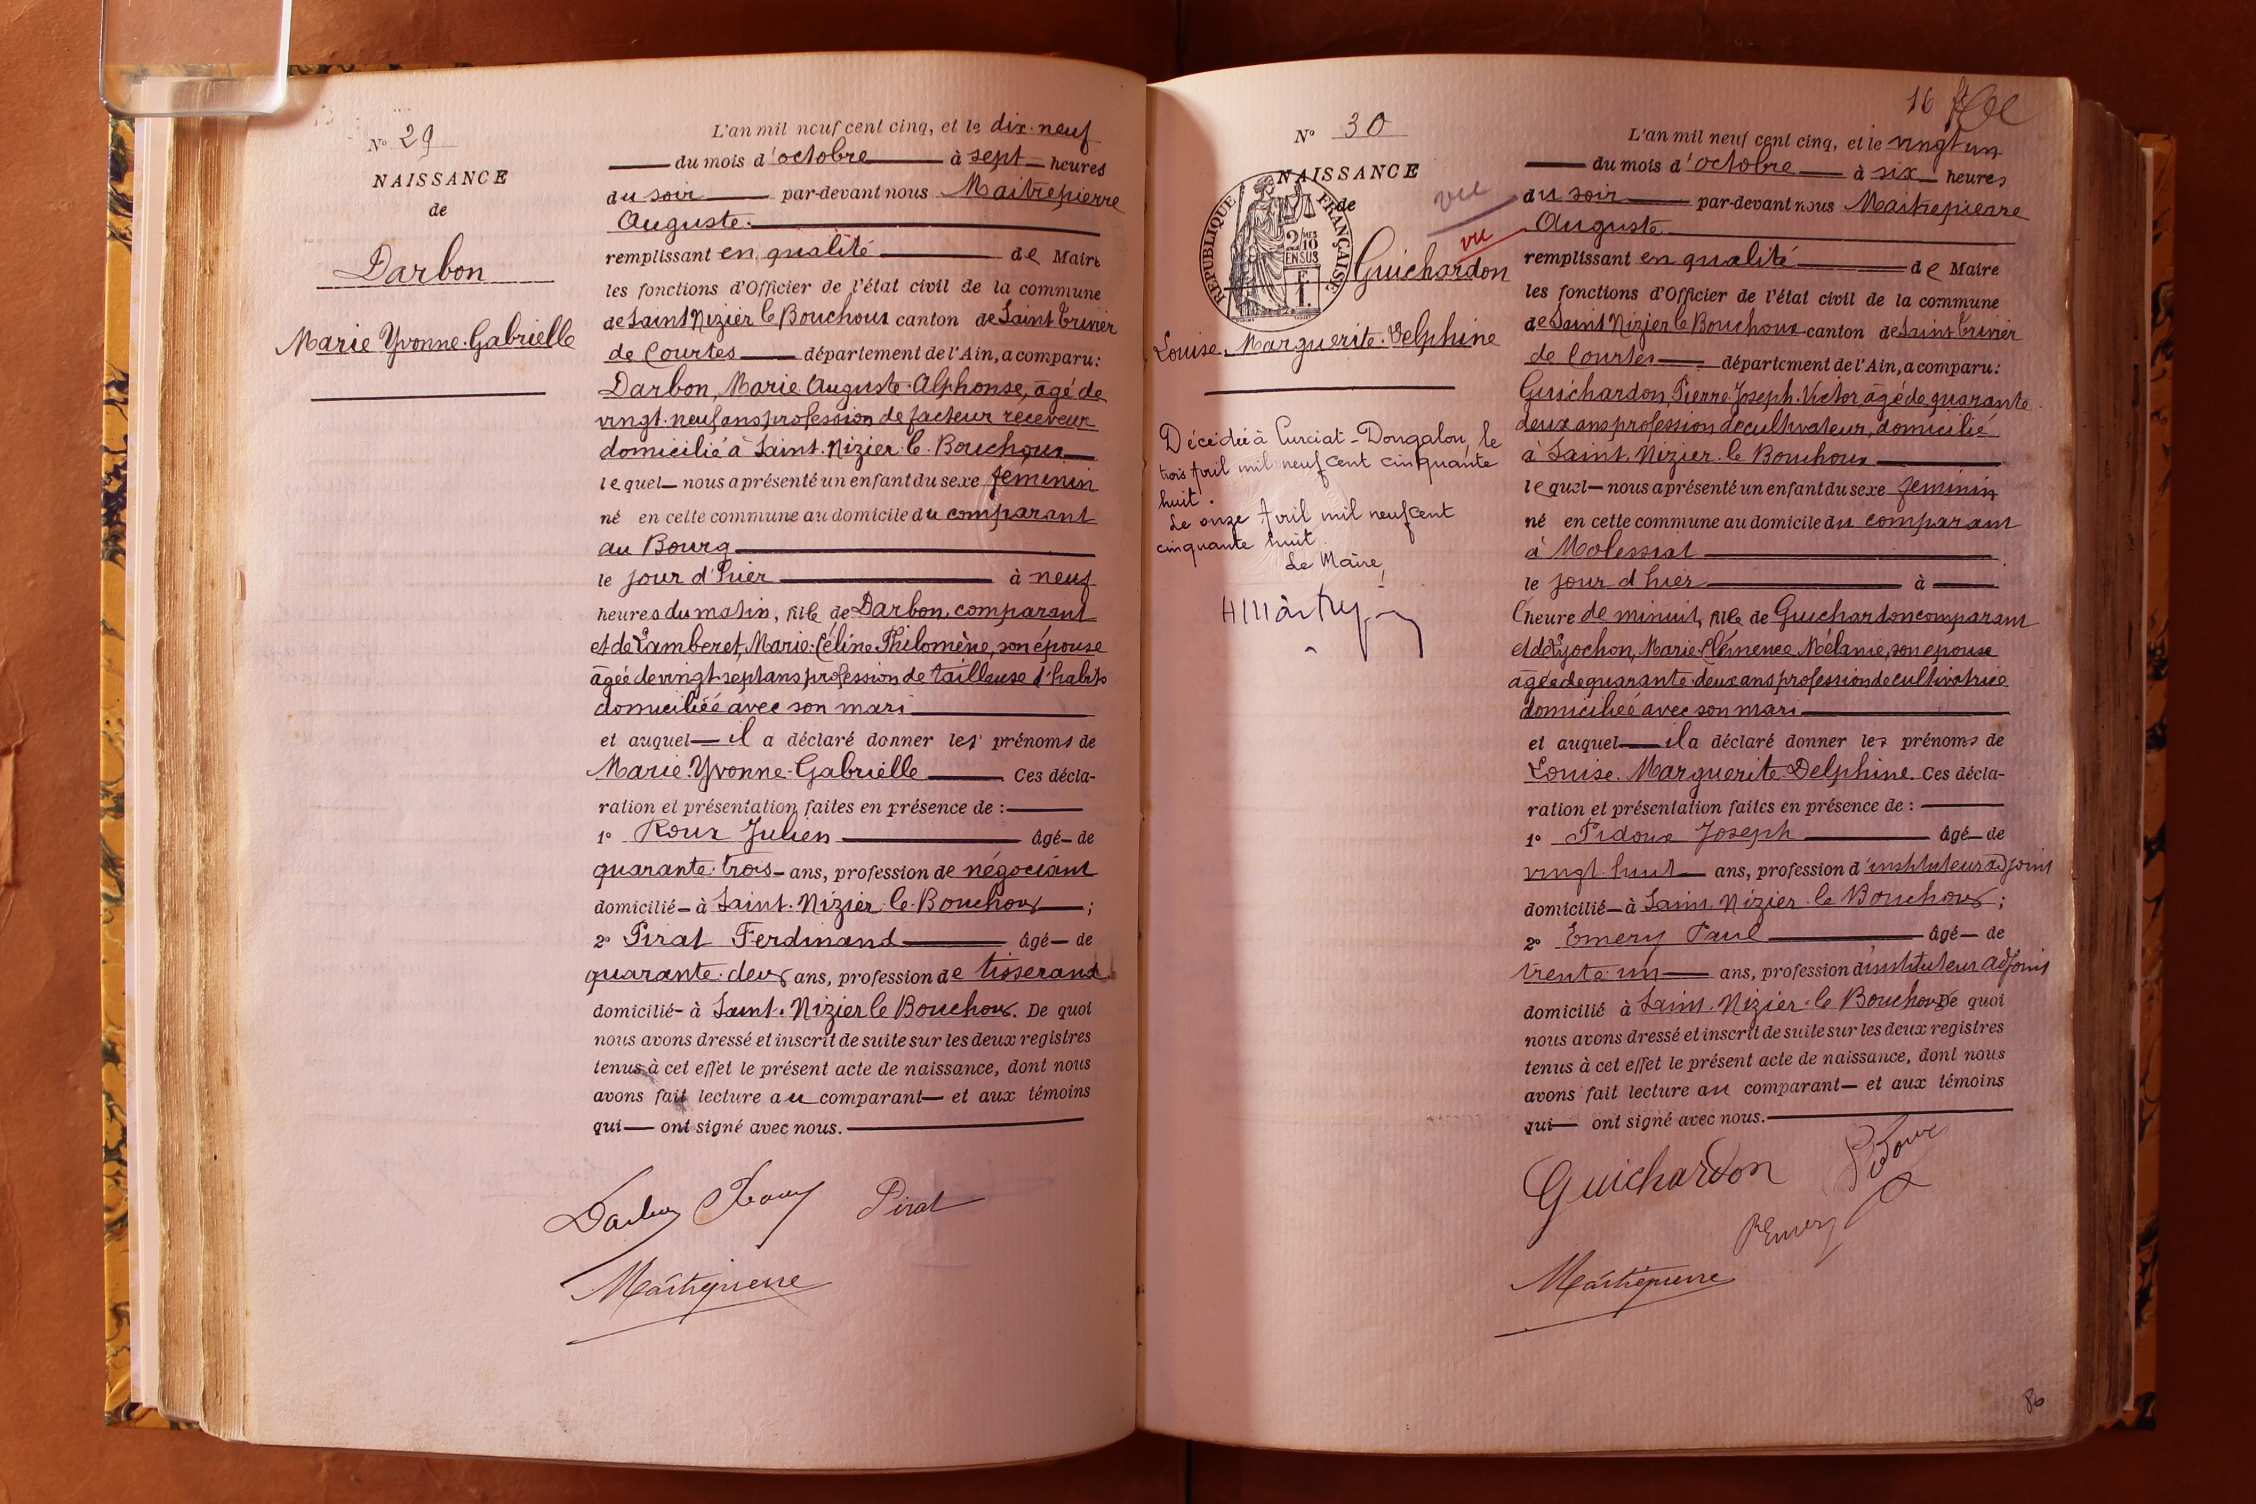 N° 29
NAISSANCE
de
Darbon
Marie Yvonne Gabrielle
L'an mil neuf cent cinq, et le dix-neuf
du mois d'octobre à sept heures
du soir par-devant nous Maitrepierre
Auguste
remplissant en qualité de Maire
les fonctions d'Officier de l'état civil de la commune
de Saint Nizier le Bouchoux canton de Saint Trivier
de Courtes département de l'Ain, a comparu:
Darbon, Marie Auguste Alphonse, âgé de
vingt-neuf ans profession de facteur receveur
domicilié à Saint-Nizier-le-Bouchoux
lequel nous a présenté un enfant du sexe féminin
né en cette commune au domicile du comparant
au Bourg
le jour d'hier à neuf
heures du matin, fille de Darbon, comparant
et de Lamberet, Marie Céline Philomène, son épouse
âgée de vingt-sept ans profession de tailleuse d'habits
domiciliée avec son mari
et auquel il a déclaré donner les prénoms de
Marie-Yvonne-Gabrielle Ces décla-
ration et présentation faites en présence de :
1° Roux Julien âgé de
quarante-trois ans, profession de négociant
domicilié à Saint-Nizier-le-Bouchoux ;
2° Pirat Ferdinand âgé de
quarante-deux ans, profession de tisserand
domicilié à Saint-Nizier le Bouchoux. De quoi
nous avons dressé et inscrit de suite sur les deux registres
tenus à cet effet le présent acte de naissance, dont nous
avons fait lecture au comparant et aux témoins
qui ont signé avec nous.
Darbon Roux Pirat
Maitrepierre
16
N° 30
NAISSANCE
de
RÉPUBLIQUE FRANÇAISE
2/10 EN SUS
1 F.
vu
vu
Guichardon
Louise-Marguerite-Delphine
Décédée à Curciat-Dongalon, le
trois Avril mil neuf cent cinquante
huit.
Le onze Avril mil neuf cent
cinquante huit
Le Maire,
L'an mil neuf cent cinq, et le vingt un
du mois d'octobre à six heures
du soir par-devant nous Maitrepierre
Auguste
remplissant en qualité de Maire
les fonctions d'Officier de l'état civil de la commune
de Saint Nizier le Bouchoux canton de Saint Trivier
de Courtes département de l'Ain, a comparu:
Guichardon, Pierre-Joseph-Victor, âgé de quarante
deux ans profession de cultivateur, domicilié
à Saint-Nizier-le Bouchoux
lequel nous a présenté un enfant du sexe féminin
né en cette commune au domicile du comparant
à Molessiat
le jour d'hier à
l'heure de minuit, fille de Guichardon comparant
et de Gochon, Marie-Clémence Mélanie, son épouse
âgée de quarante-deux ans profession de cultivatrice
domiciliée avec son mari
et auquel il a déclaré donner les prénoms de
Louise-Marguerite-Delphine. Ces décla-
ration et présentation faites en présence de :
1° Pidoux Joseph âgé de
vingt-huit ans, profession d'instituteur adjoint
domicilié à Saint-Nizier-le Bouchoux ;
2° Emery Paul âgé de
trente-un ans, profession d'instituteur adjoint
domicilié à Saint-Nizier-le Bouchoux De quoi
nous avons dressé et inscrit de suite sur les deux registres
tenus à cet effet le présent acte de naissance, dont nous
avons fait lecture au comparant et aux témoins
qui ont signé avec nous.
Guichardon Pidoux
PEmery
Maitrepierre
86